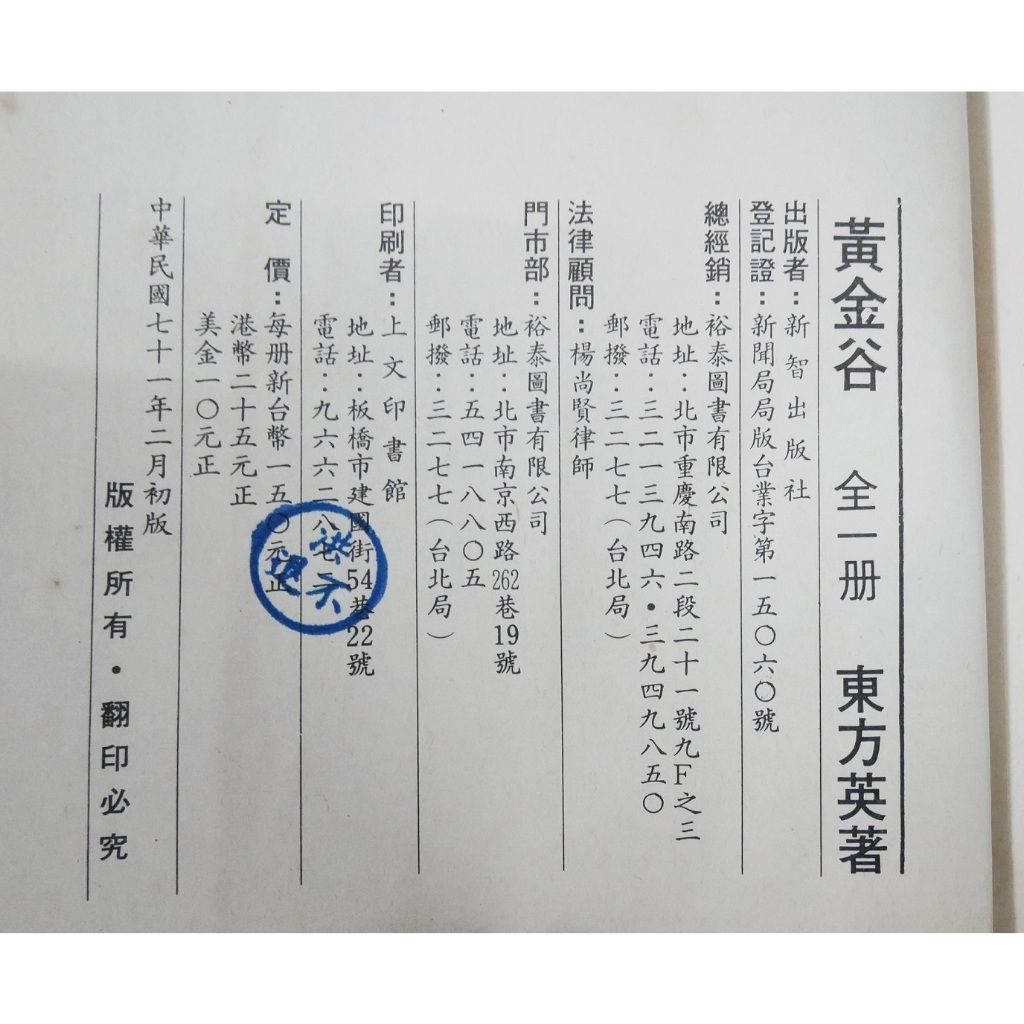 黃金谷 全一册 東方英著
出版者：新智出版社
登記證：新聞局局版台業字第一五〇六〇號
總經銷：裕泰圖書有限公司
地址：北市重慶南路二段二十一號九F之三
電話：三二一三九四六・三九四九八五〇
郵撥：三二七七（台北局）
法律顧問：楊尚賢律師
門市部：裕泰圖書有限公司
地址：北市南京西路262巷19號
電話：五四一八八〇五
郵撥：三二七七（台北局）
印刷者：上文印書館
地址：板橋市建國街54巷22號
電話：九六六二八七
定價：每册新台幣一五〇元正
港幣二十五元正
美金一〇元正
中華民國七十一年二月初版
版權所有・翻印必究